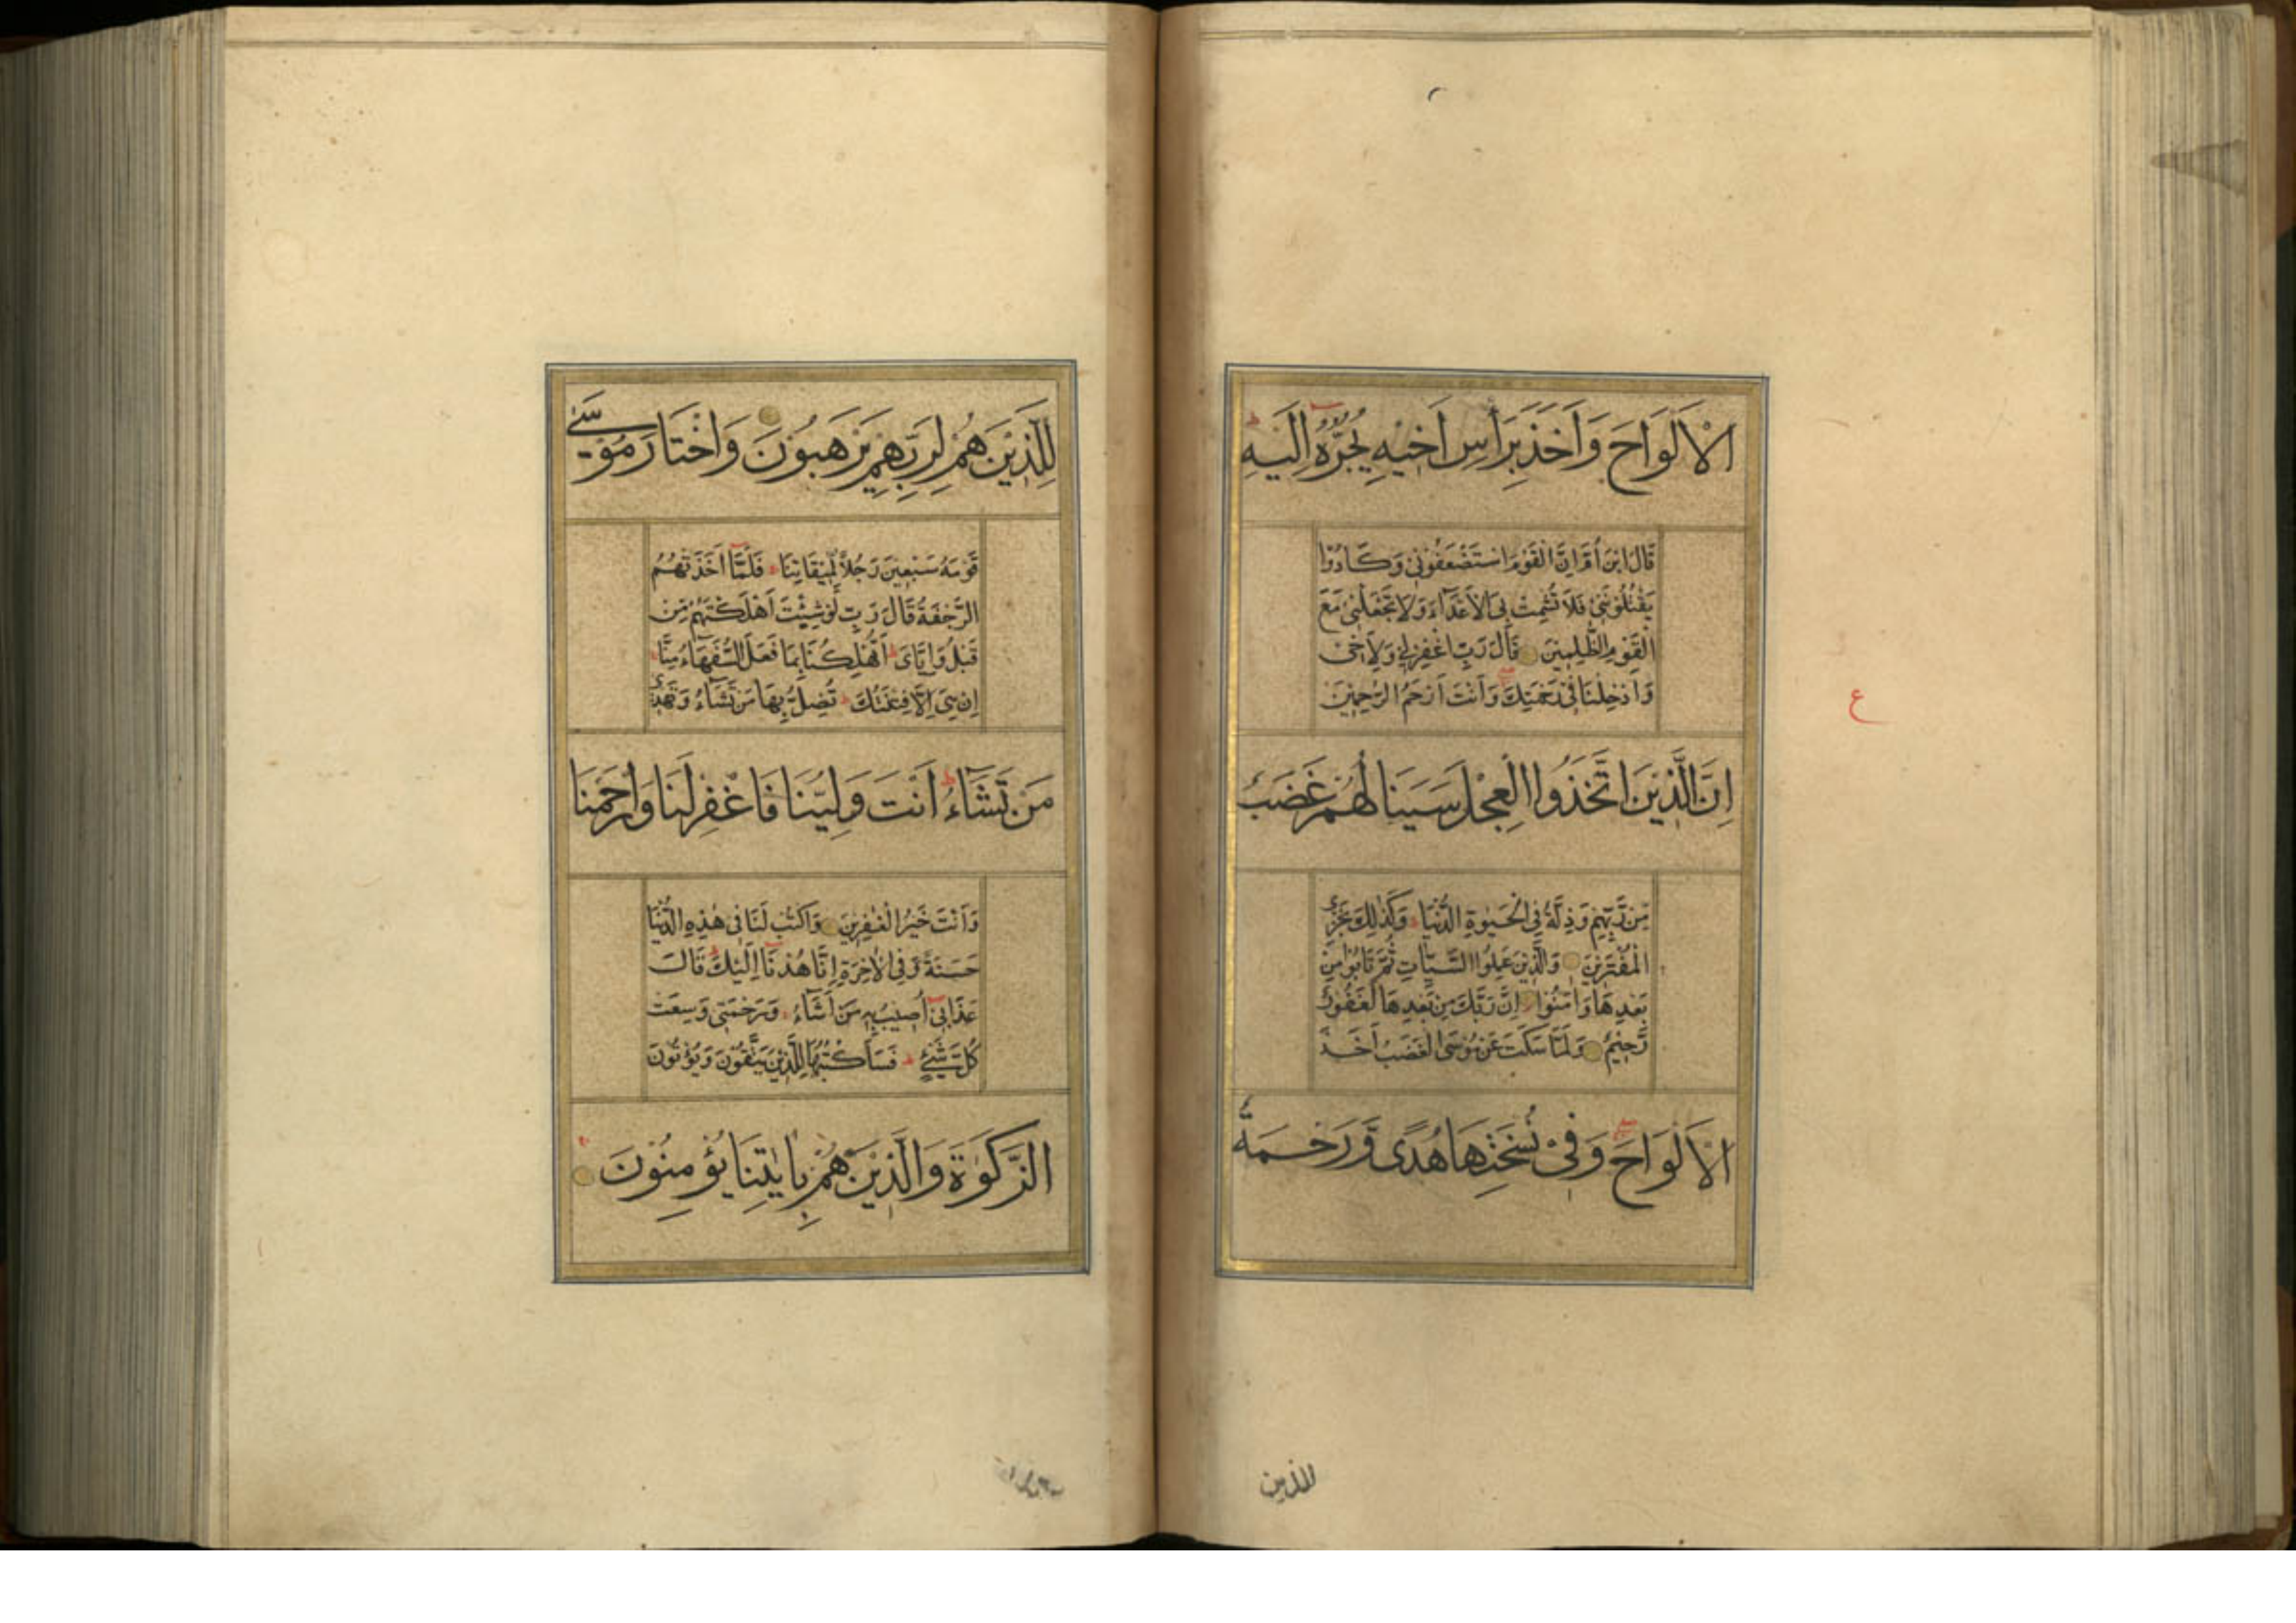 الْاَلْوَاحَ وَاَخَذَ بِرَاْسِ اَخِيْهِ يَجُرُّهُ اِلَيْهِ
قَالَ ابْنَ اُمَّ اِنَّ الْقَوْمَ اسْتَضْعَفُوْنِيْ وَكَادُوْا
يَقْتُلُوْنَنِيْ فَلَا تُشْمِتْ بِيَ الْاَعْدَآءَ وَلَا تَجْعَلْنِيْ مَعَ
الْقَوْمِ الظّٰلِمِيْنَ قَالَ رَبِّ اغْفِرْ لِيْ وَلِاَخِيْ
وَاَدْخِلْنَا فِيْ رَحْمَتِكَ وَاَنْتَ اَرْحَمُ الرّٰحِمِيْنَ
ع
اِنَّ الَّذِيْنَ اتَّخَذُوا الْعِجْلَ سَيَنَالُهُمْ غَضَبٌ
مِّنْ رَّبِّهِمْ وَذِلَّةٌ فِي الْحَيٰوةِ الدُّنْيَا وَكَذٰلِكَ نَجْزِي
الْمُفْتَرِيْنَ وَالَّذِيْنَ عَمِلُوا السَّيِّاٰتِ ثُمَّ تَابُوْا مِنْ
بَعْدِهَا وَاٰمَنُوْا اِنَّ رَبَّكَ مِنْ بَعْدِهَا لَغَفُوْرٌ
رَّحِيْمٌ وَلَمَّا سَكَتَ عَنْ مُوْسَى الْغَضَبُ اَخَذَ
الْاَلْوَاحَ وَفِيْ نُسْخَتِهَا هُدًى وَّرَحْمَةٌ
للذين
لِلَّذِيْنَ هُمْ لِرَبِّهِمْ يَرْهَبُوْنَ وَاخْتَارَ مُوْسٰى
قَوْمَهٗ سَبْعِيْنَ رَجُلًا لِّمِيْقَاتِنَا فَلَمَّا اَخَذَتْهُمُ
الرَّجْفَةُ قَالَ رَبِّ لَوْ شِئْتَ اَهْلَكْتَهُمْ مِّنْ
قَبْلُ وَاِيَّايَ اَتُهْلِكُنَا بِمَا فَعَلَ السُّفَهَآءُ مِنَّا
اِنْ هِيَ اِلَّا فِتْنَتُكَ تُضِلُّ بِهَا مَنْ تَشَآءُ وَتَهْدِيْ
مَنْ تَشَآءُ اَنْتَ وَلِيُّنَا فَاغْفِرْ لَنَا وَارْحَمْنَا
وَاَنْتَ خَيْرُ الْغٰفِرِيْنَ وَاكْتُبْ لَنَا فِيْ هٰذِهِ الدُّنْيَا
حَسَنَةً وَّفِي الْاٰخِرَةِ اِنَّا هُدْنَا اِلَيْكَ قَالَ
عَذَابِيْ اُصِيْبُ بِهٖ مَنْ اَشَآءُ وَرَحْمَتِيْ وَسِعَتْ
كُلَّ شَيْءٍ فَسَاَكْتُبُهَا لِلَّذِيْنَ يَتَّقُوْنَ وَيُؤْتُوْنَ
الزَّكٰوةَ وَالَّذِيْنَ هُمْ بِاٰيٰتِنَا يُؤْمِنُوْنَ